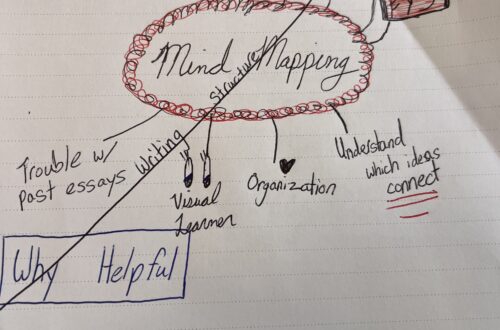 Mind Mapping
Writing Structure
Trouble w/
past essays
Visual
Learner
Organization
Understand
which ideas
connect
Why Helpful